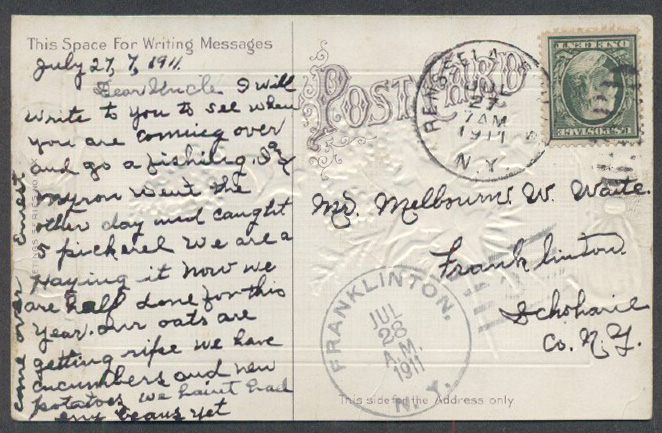 This Space For Writing Messages
July 27, 7, 1911.
Dear Uncle. I will
write to you to see when
you are coming over
and go a fishing. I &
Myron went the
other day and caught
5 pickerel We are a
Haying it now we
are half done for this
year. our oats are
getting ripe we have
cucumbers and new
potatoes we haint had
eny beans yet
come over Ernest
POST CARD
RENSSELAER
JUL
27
7 AM
1911
N.Y.
ONE CENT
U.S. POSTAGE
Mr. Melbourne W. Waite.
Franklinton.
Schoharie
Co. N.Y.
FRANKLINTON,
JUL
28
A.M.
1911
N.Y.
This side for the Address only.